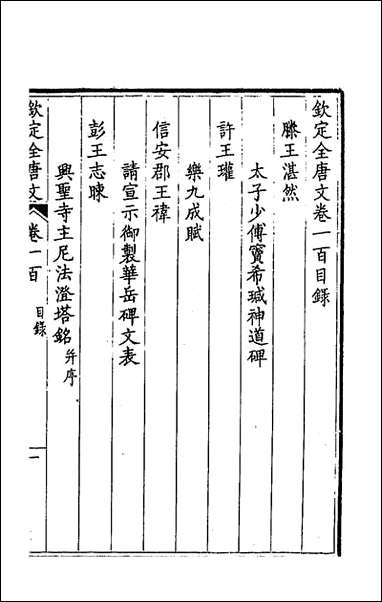 欽定全唐文卷一百目錄
滕王湛然
太子少傅竇希瑊神道碑
許王瓘
樂九成賦
信安郡王禕
請宣示御製華岳碑文表
彭王志暕
興聖寺主尼法澄塔銘并序
欽定全唐文 卷一百 目錄 一